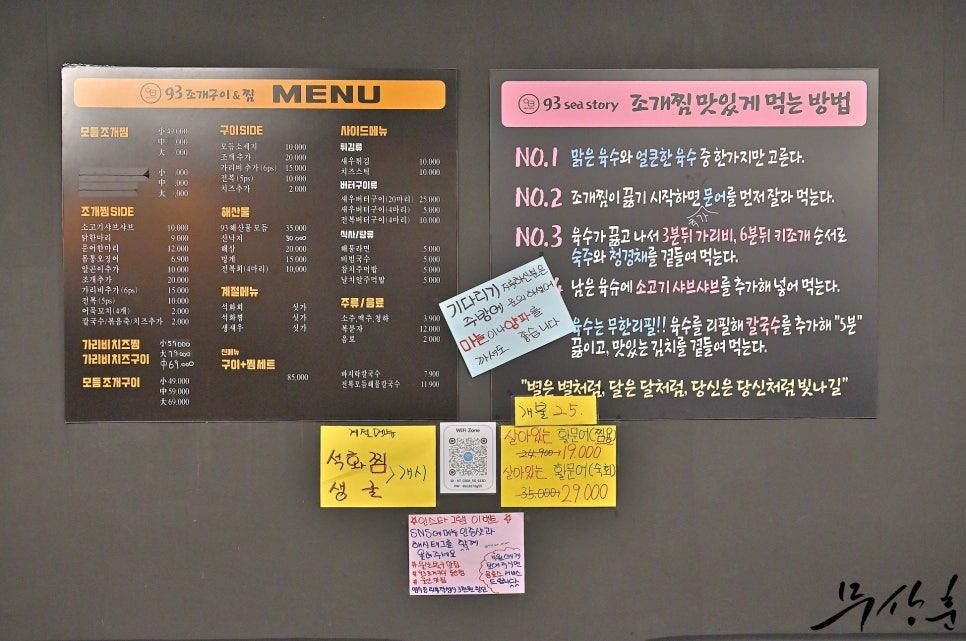 93 조개구이 & 찜 MENU
모듬조개찜 小 49.000
中 .000
大 .000
小 .000
中 .000
大 .000
조개찜 SIDE
소고기샤브샤브 10.000
닭한마리 9.000
문어한마리 12.000
몸통오징어 6,900
알곤이추가 10.000
조개추가 20.000
가리비추가 (6ps) 15.000
전복 (5ps) 10.000
어묵꼬치(4개) 2.000
칼국수/볶음죽/치즈추가 2.000
가리비치즈찜 小 59000
가리비치즈구이 大 79000
中 69000
모듬조개구이 小 49.000
中 59.000
大 69.000
구이 SIDE
모듬소세지 10.000
조개추가 20.000
가리비추가 (6ps) 15.000
전복 (5ps) 10.000
치즈추가 2.000
해산물
93해산물 모듬 35.000
산낙지
해삼 20.000
멍게 15.000
전복회(4마리) 10.000
계절메뉴
석화회 싯가
석화찜 싯가
생새우 싯가
신메뉴
구이+찜 세트
85,000
사이드메뉴
튀김류
새우튀김 10.000
치즈스틱 10.000
버터구이류
새우버터구이(20마리) 25.000
새우버터구이(4마리) 5.000
전복버터구이(4마리) 10.000
식사/탕류
해물라면 5.000
비빔국수 5.000
참치주먹밥 5.000
날치알주먹밥 5.000
주류 / 음료
소주,맥주,청하 3.900
복분자 12.000
음료 2.000
바지락칼국수 7.900
전복모듬해물칼국수 11.900
93 sea story 조개찜 맛있게 먹는 방법
NO.1 맑은 육수와 얼큰한 육수 중 한가지만 고른다.
NO.2 조개찜이 끓기 시작하면 문어를 먼저 잘라 먹는다.
추가
NO.3 육수가 끓고 나서 3분뒤 가리비, 6분뒤 키조개 순서로
숙주와 청경채를 곁들여 먹는다.
남은 육슈에 소고기 샤브샤브를 추가해 넣어 먹는다.
육수는 무한리필!! 육수를 리필해 칼국수를 추가해 "5분"
끓이고, 맛있는 김치를 곁들여 먹는다.
"별은 별처럼, 달은 달처럼, 당신은 당신처럼 빛나길"
기다리기
주방에
마늘이나 양파를
까셔도 좋습니다
개불 25.
계절메뉴
석화찜 > 개시
생굴
WiFi Zone
살아있는 활문어(찜용)
24.900→19.000
살아있는 활문어(숙회)
35.000→29000
☆인스타그램 이벤트☆
SNS에 메뉴 인증샷과
해시태그를 함께
올려주세요
무상훈